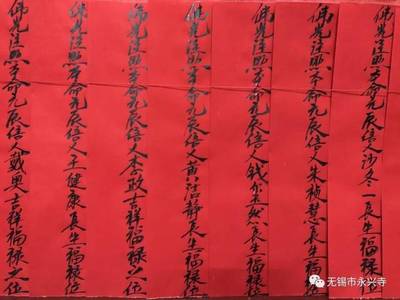 佛光注照本命元辰信人沙冬一長生福祿位
佛光注照本命元辰信人朱楨慧長生福祿位
佛光注照本命元辰信人钱然長生福祿位
佛光注照本命元辰信人洁静長生福祿位
佛光注照本命元辰信人李政吉祥福祿之位
佛光注照本命元辰信人王健康長生福祿位
佛光注照本命元辰信人戴奥吉祥福祿之位
无锡市永兴寺